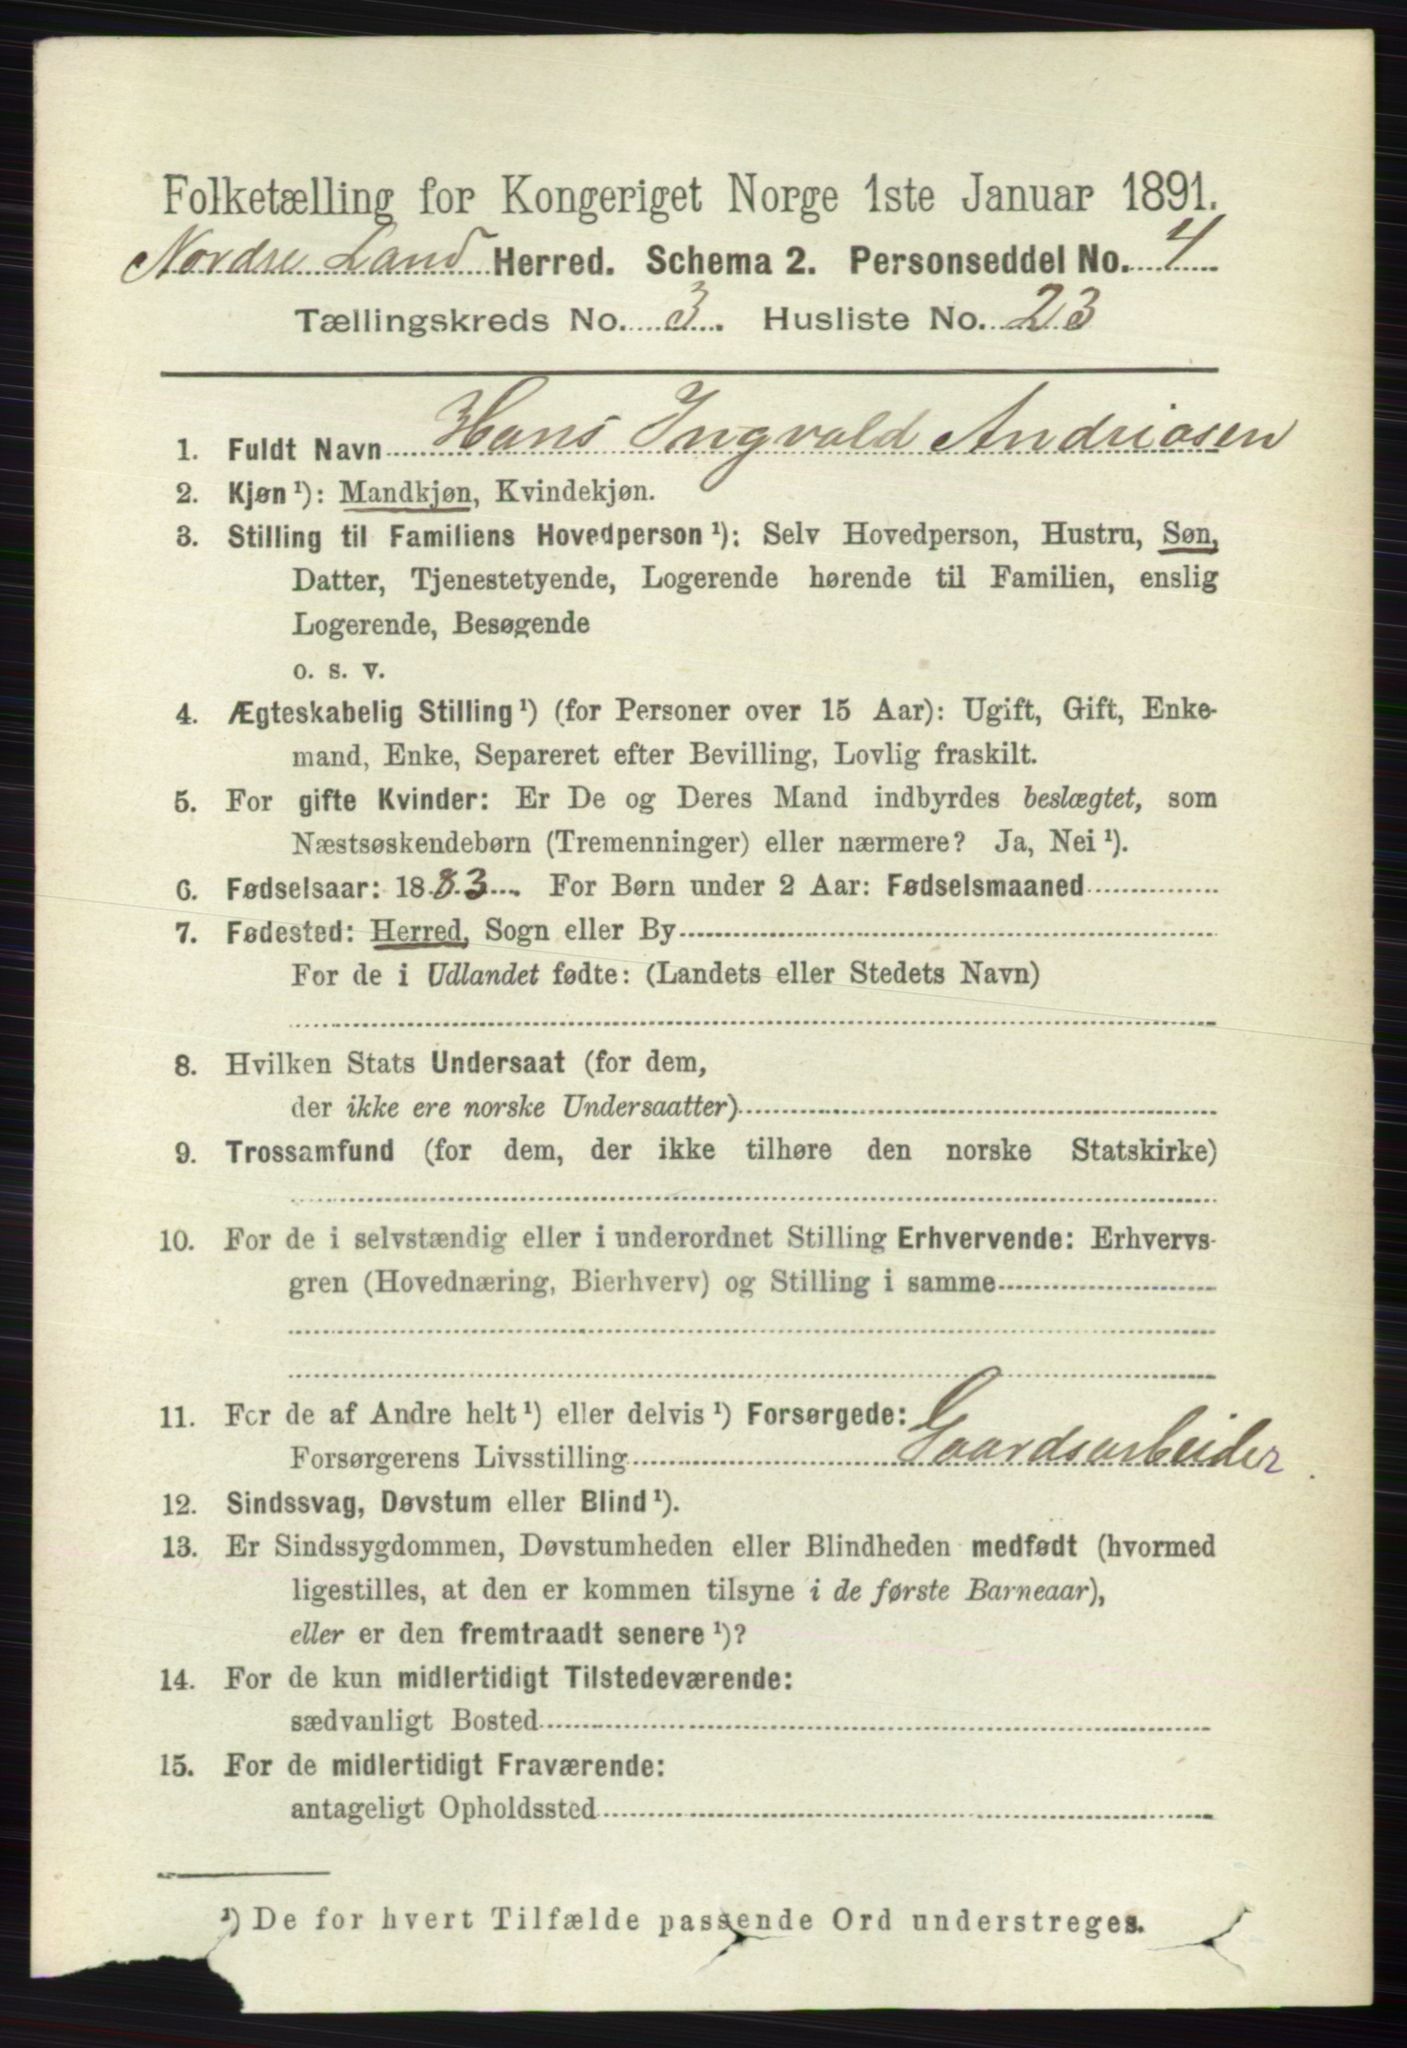 Folketælling for Kongeriget Norge 1ste Januar 1891.
Nordre Land Herred. Schema 2. Personseddel No. 4
Tællingskreds No. 3. Husliste No. 23
1. Fuldt Navn Hans Ingvald Andriasen
2. Kjøn ¹): Mandkjøn, Kvindekjøn.
3. Stilling til Familiens Hovedperson ¹): Selv Hovedperson, Hustru, Søn,
Datter, Tjenestetyende, Logerende hørende til Familien, enslig
Logerende, Besøgende
o. s. v.
4. Ægteskabelig Stilling ¹) (for Personer over 15 Aar): Ugift, Gift, Enke-
mand, Enke, Separeret efter Bevilling, Lovlig fraskilt.
5. For gifte Kvinder: Er De og Deres Mand indbyrdes beslægtet, som
Næstsøskendebørn (Tremenninger) eller nærmere? Ja, Nei ¹).
6. Fødselsaar: 1883. For Børn under 2 Aar: Fødselsmaaned
7. Fødested: Herred, Sogn eller By
For de i Udlandet fødte: (Landets eller Stedets Navn)
8. Hvilken Stats Undersaat (for dem,
der ikke ere norske Undersaatter)
9. Trossamfund (for dem, der ikke tilhøre den norske Statskirke)
10. For de i selvstændig eller i underordnet Stilling Erhvervende: Erhvervs-
gren (Hovednæring, Bierhverv) og Stilling i samme
11. For de af Andre helt ¹) eller delvis ¹) Forsørgede:
Forsørgerens Livsstilling Gaardsarbeider
12. Sindssvag, Døvstum eller Blind ¹).
13. Er Sindssygdommen, Døvstumheden eller Blindheden medfødt (hvormed
ligestilles, at den er kommen tilsyne i de første Barneaar),
eller er den fremtraadt senere ¹)?
14. For de kun midlertidigt Tilstedeværende:
sædvanligt Bosted
15. For de midlertidigt Fraværende:
antageligt Opholdssted
¹) De for hvert Tilfælde passende Ord understreges.